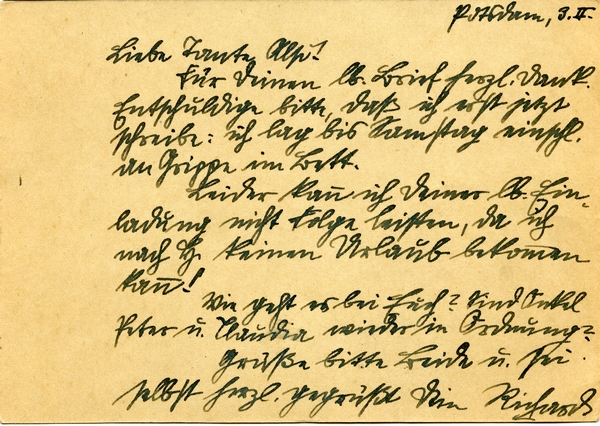 Potsdam, 3.II.
Liebe Tante Else!
Für Deinen lb. Brief herzl. Dank.
Entschuldige bitte, daß ich erst jetzt
schreibe: ich lag bis Samstag einschl.
an Grippe im Bett.
Leider kan̄ ich Deiner lb. Ein-
ladung nicht Folge leisten, da ich
nach H. keinen Urlaub bekom̄en
kan̄!
Wie geht es bei Euch? Sind Onkel
Peter u. Claudia wieder in Ordnung?
Grüße bitte Beide u. sei
selbst herzl. gegrüßt Dein Richard